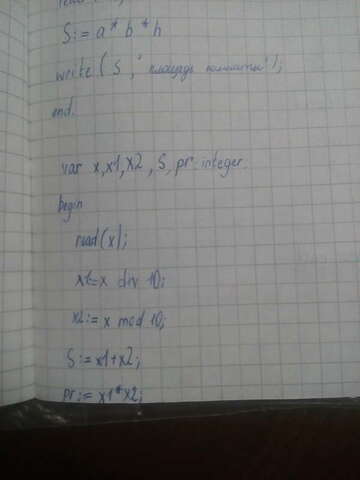 S:= a * b * h
write (S, ' площадь комнаты');
end.
var x,x1,x2, S, pr: integer.
begin
read(x);
x1:=x div 10;
x2:= x mod 10;
S:= x1+x2;
pr:= x1*x2;